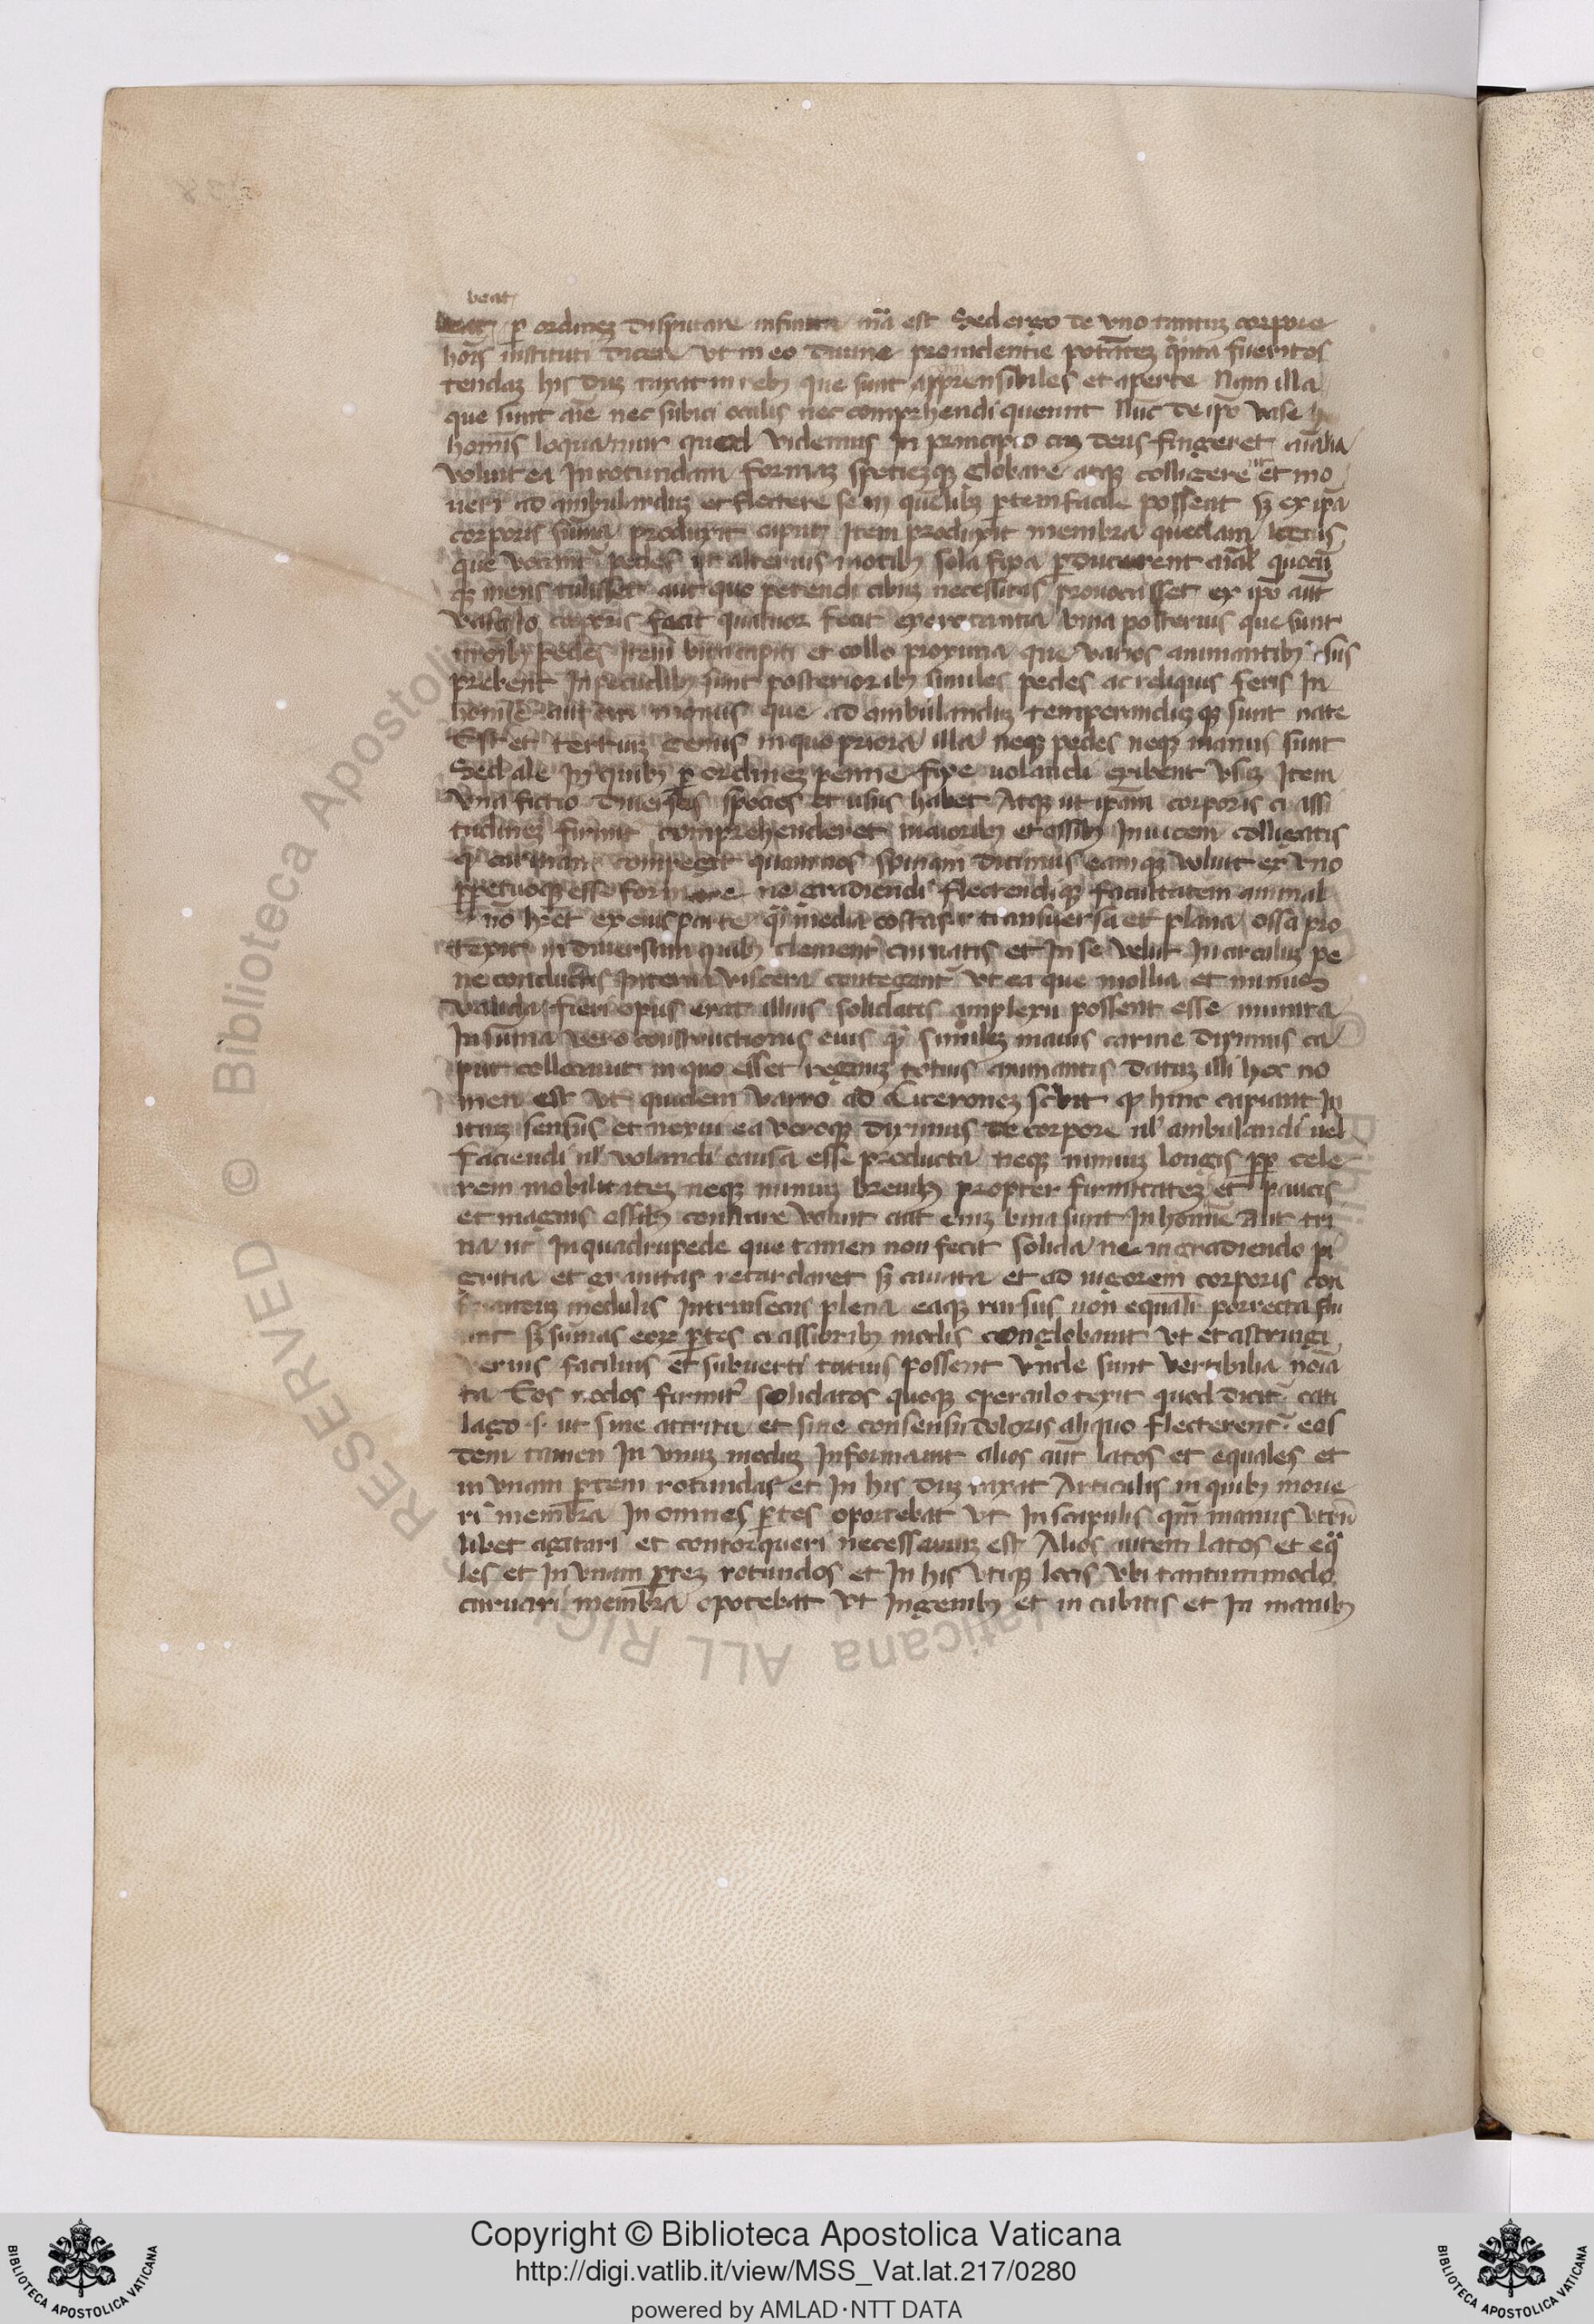 beat
beat p ordinez disputare infinita mā est Sed ergo de vno tantuz corpore
hoīs instituti dicere vt in eo diuine prouidentie potātez q̄nta fuerit os
tendaz his duz taxat in rebꝫ que sunt apprensibiles et aperte Nam illa
que sunt aīe nec subici oculis nec comprhendi queunt Nūc de ipō vase
homīs loquamur quod videmus In principio cuz deus fingeret aīalia
voluit ea In rotundam formaz spetiezqꝫ Globare atqꝫ colligere ut et mo
ueri ad ambulanduz et flectere se in quēlibꝫ ptem facile possent sꝫ ex ipā
corporis sūma produxit caput Item produxit membra quedam lōgius
que vocant pedes ut alternis motibꝫ sola fixa pducerent aīal quocū
qꝫ mens tulisset aut quo petendi cibuz necessitas prouocasset ex ipō aut
vasculo corporis fecit quatuor fecit exerētantia bina posterius que sunt
in oībꝫ pedes Item bina capiti et collo proxima que varios animantibꝫ usus
prebent In pecudibꝫ sunt posterioribꝫ similes pedes ac reliquis feris In
homīe autem manus que ad ambulanduz temperanduzqꝫ sunt nate
Est et tertiuz Genus in quo priora illa neqꝫ pedes neqꝫ manus sunt
Sed ale In quibꝫ p ordinez penne fixe uolandi exibent vsuz Item
vna fictio diuersas species et usus habet Atqꝫ ut ipām corporis crassi
tudinez firmit comprehenderet maioribꝫ et ossibꝫ Inuicem colligatis
qᷓ carinam compegit quam nos spinam dicimus eamqꝫ voluit ex vno
ppetuoqꝫ esse formare ne gradiendi flectendiqꝫ facultatem animal
nō hr̄et ex eius parte qᷓ media costas r transuersa et plana ossa pro
texit in diuersam quibꝫ clementer curuatis et In se velut In circuluz pe
ne conductis Interna viscera contegant̄ vt ea que mollia et minus
valida fieri opus erat illius solidatis amplexu possent esse munita
In suma vero constructionis eius qᷓ similez nauis carine diximus ca
put collocauit in quo esset regimuz totius animantis datuz illi hoc no
men est vt quidem varro ad Ciceronez scribit qꝫ hinc capiant In
ituz sensus et nerui ea veroqꝫ diximus de corpore ul ambulandi uel
faciendi ul volandi causa esse producta neqꝫ nimiuz longis pp cele
rem mobilitatez neqꝫ nimiuz breuibꝫ propter firmitatez et paucis
et magnis ossibꝫ constare voluit aut eniz bina sunt In homīe aut tri
na ut In quadrupede que tamen non fecit solida ne in gradiendo pi
gritia et grauitas retardaret sꝫ cauata et ad uigorem corporis con
seruanduz medulis Intrinsecus plena eaqꝫ rursus non equalī porrecta fini
uit sꝫ sumas eorz ptes crassioribꝫ modis conglobauit vt et astringi
neruis facilius et subuerti tutius possent vnde sunt vertibilia noīa
ta Eos nodos firmit̄ solidatos quoqꝫ operculo texit quod dicit̄ cati
lago s. ut sine attritu et sine consensu doloris aliquo flecterent̄ eos
dem tamen In vnuz moduz Informauit alios aut latos et equales et
in vnam ptem rotundas et In his duz taxat Articulis in quibꝫ moue
ri membra In omnes ptes oportebat vt In scapulis qm̄ manus vtrū
libet agitari et contorqueri necessariuz est Alios autem latos et eqᷓ
les et In vnam ptez rotundos et In his vtiqꝫ locis vbi tantummodo
curuari membra opotebat vt In genibꝫ et in cubitis et In manibꝫ
Copyright © Biblioteca Apostolica Vaticana
http://digi.vatlib.it/view/MSS_Vat.lat.217/0280
powered by AMLAD·NTT DATA